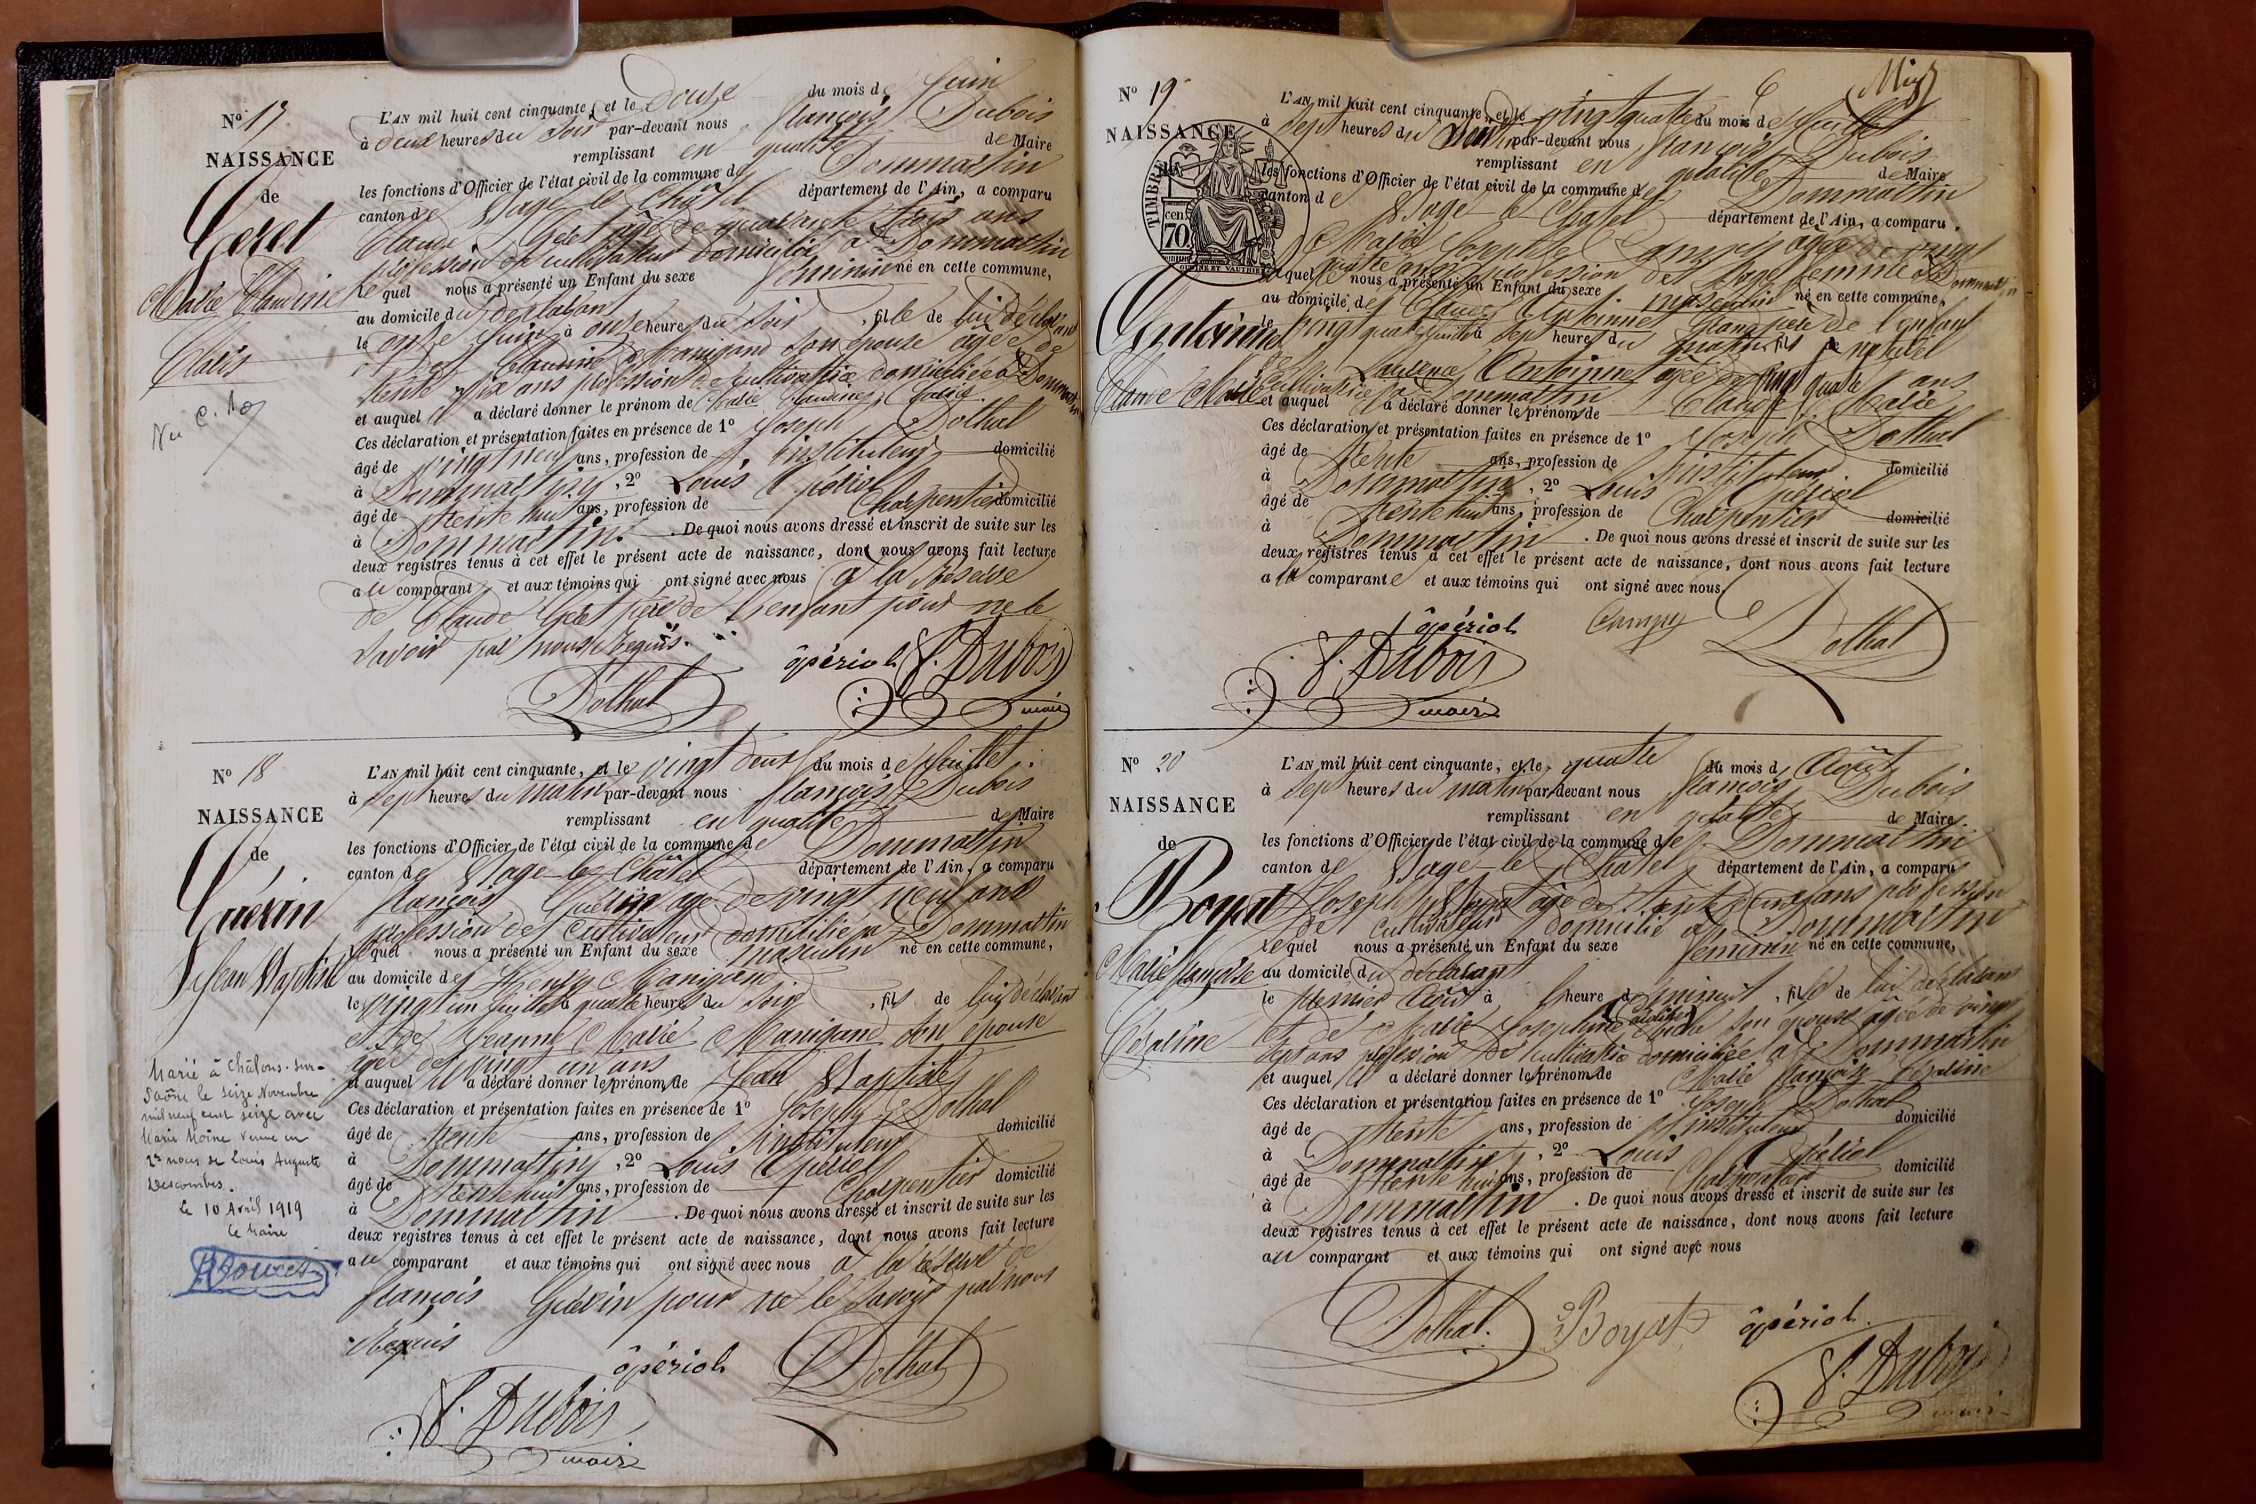 N° 17
NAISSANCE
de
Geret
Marie Claudine
L'AN mil huit cent cinquante, et le Douze du mois de Juin
à deux heures du soir par-devant nous françois Dubois
remplissant en qualité de Maire
les fonctions d'Officier de l'état civil de la commune de Dommartin
canton de Bagé-le-Châtel département de l'Ain, a comparu
Claude Geret âgé de quarante trois ans
profession de cultivateur domicilié à Dommartin
lequel nous a présenté un Enfant du sexe féminin né en cette commune,
au domicile du déclarant
le onze Juin à onze heures du soir, fille de lui déclarant
et de Claudine Manigand son épouse âgée de
trente six ans profession de cultivatrice domiciliée à Dommartin
et auquel il a déclaré donner le prénom de Marie Claudine
Ces déclaration et présentation faites en présence de 1° Joseph Dothal
âgé de vingt neuf ans, profession de instituteur domicilié
à Dommartin, 2° Louis Opériol
âgé de trente huit ans, profession de Charpentier domicilié
à Dommartin. De quoi nous avons dressé et inscrit de suite sur les
deux registres tenus à cet effet le présent acte de naissance, dont nous avons fait lecture
au comparant et aux témoins qui ont signé avec nous à la Réserve
de Claude Geret père de l'enfant pour ne le
savoir par nous Requis.
ôpériol f. Dubois
Dothal maire
N° 18
NAISSANCE
de
Guérin
Jean Baptiste
L'AN mil huit cent cinquante, et le vingt deux du mois de Juillet
à sept heures du matin par-devant nous françois Dubois
remplissant en qualité de Maire
les fonctions d'Officier de l'état civil de la commune de Dommartin
canton de Bagé-le-Châtel département de l'Ain, a comparu
françois Guérin âgé de vingt neuf ans
profession de Cultivateur domicilié à Dommartin
lequel nous a présenté un Enfant du sexe masculin né en cette commune,
au domicile de Manigand
le vingt un Juillet à quatre heures du soir, fils de lui déclarant
et de Jeanne Marie Manigand son épouse
âgée de vingt un ans
et auquel il a déclaré donner le prénom de Jean Baptiste
Ces déclaration et présentation faites en présence de 1° Joseph Dothal
âgé de trente ans, profession de instituteur domicilié
à Dommartin, 2° Louis Opériol
âgé de trente huit ans, profession de Charpentier domicilié
à Dommartin. De quoi nous avons dressé et inscrit de suite sur les
deux registres tenus à cet effet le présent acte de naissance, dont nous avons fait lecture
au comparant et aux témoins qui ont signé avec nous à la réserve de
françois Guérin pour ne le savoir par nous
Requis
ôpériol Dothal
f. Dubois
maire
Marié à Châlons-sur-
Saône le seize Novembre
mil neuf cent seize avec
Marie Moine veuve en
2es noces de Louis Auguste
Descombes.
Le 10 Avril 1919
Le Maire
N° 19
NAISSANCE
de
TIMBRE
70 cen.
Antoinnet
Claude Marie
L'AN mil huit cent cinquante, et le vingt quatre du mois de Juillet
à sept heures du par-devant nous françois Dubois
remplissant en qualité de Maire
les fonctions d'Officier de l'état civil de la commune de Dommartin
canton de Bagé-le-Chatel département de l'Ain, a comparu
Marie âgée de vingt
quatre ans profession de Sage femme à Dommartin
laquelle nous a présenté un Enfant du sexe masculin né en cette commune,
au domicile de Claude Antoinnet Grand père de l'enfant
le vingt quatre Juillet à sept heures du matin, fils naturel
de Laurence Antoinnet âgée de vingt quatre ans
Cultivatrice à Dommartin
et auquel a déclaré donner le prénom de Claude Marie
Ces déclaration et présentation faites en présence de 1° Joseph Dothal
âgé de trente ans, profession de instituteur domicilié
à Dommartin, 2° Louis Opériol
âgé de trente huit ans, profession de Charpentier domicilié
à Dommartin. De quoi nous avons dressé et inscrit de suite sur les
deux registres tenus à cet effet le présent acte de naissance, dont nous avons fait lecture
a la comparante et aux témoins qui ont signé avec nous.
ôpériol Dothal
f. Dubois
maire
N° 20
NAISSANCE
de
Boyat
Marie françoise
L'AN mil huit cent cinquante, et le quatre du mois d Août
à sept heures du matin par-devant nous françois Dubois
remplissant en qualité de Maire
les fonctions d'Officier de l'état civil de la commune de Dommartin
canton de Bagé-le-Chatel département de l'Ain, a comparu
Joseph Boyat âgé de trente ans profession
de cultivateur domicilié à Dommartin
lequel nous a présenté un Enfant du sexe féminin né en cette commune,
au domicile du déclarant
le premier Août à heure d minuit, fille de lui déclarant
et de Marie Josephine son épouse âgée de vingt
sept ans profession de cultivatrice domiciliée à Dommartin
et auquel il a déclaré donner le prénom de Marie françoise
Ces déclaration et présentation faites en présence de 1° Joseph Dothal
âgé de trente ans, profession de instituteur domicilié
à Dommartin, 2° Louis Opériol
âgé de trente huit ans, profession de Charpentier domicilié
à Dommartin. De quoi nous avons dressé et inscrit de suite sur les
deux registres tenus à cet effet le présent acte de naissance, dont nous avons fait lecture
au comparant et aux témoins qui ont signé avec nous
Dothal. Boyat ôpériol.
f. Dubois
maire